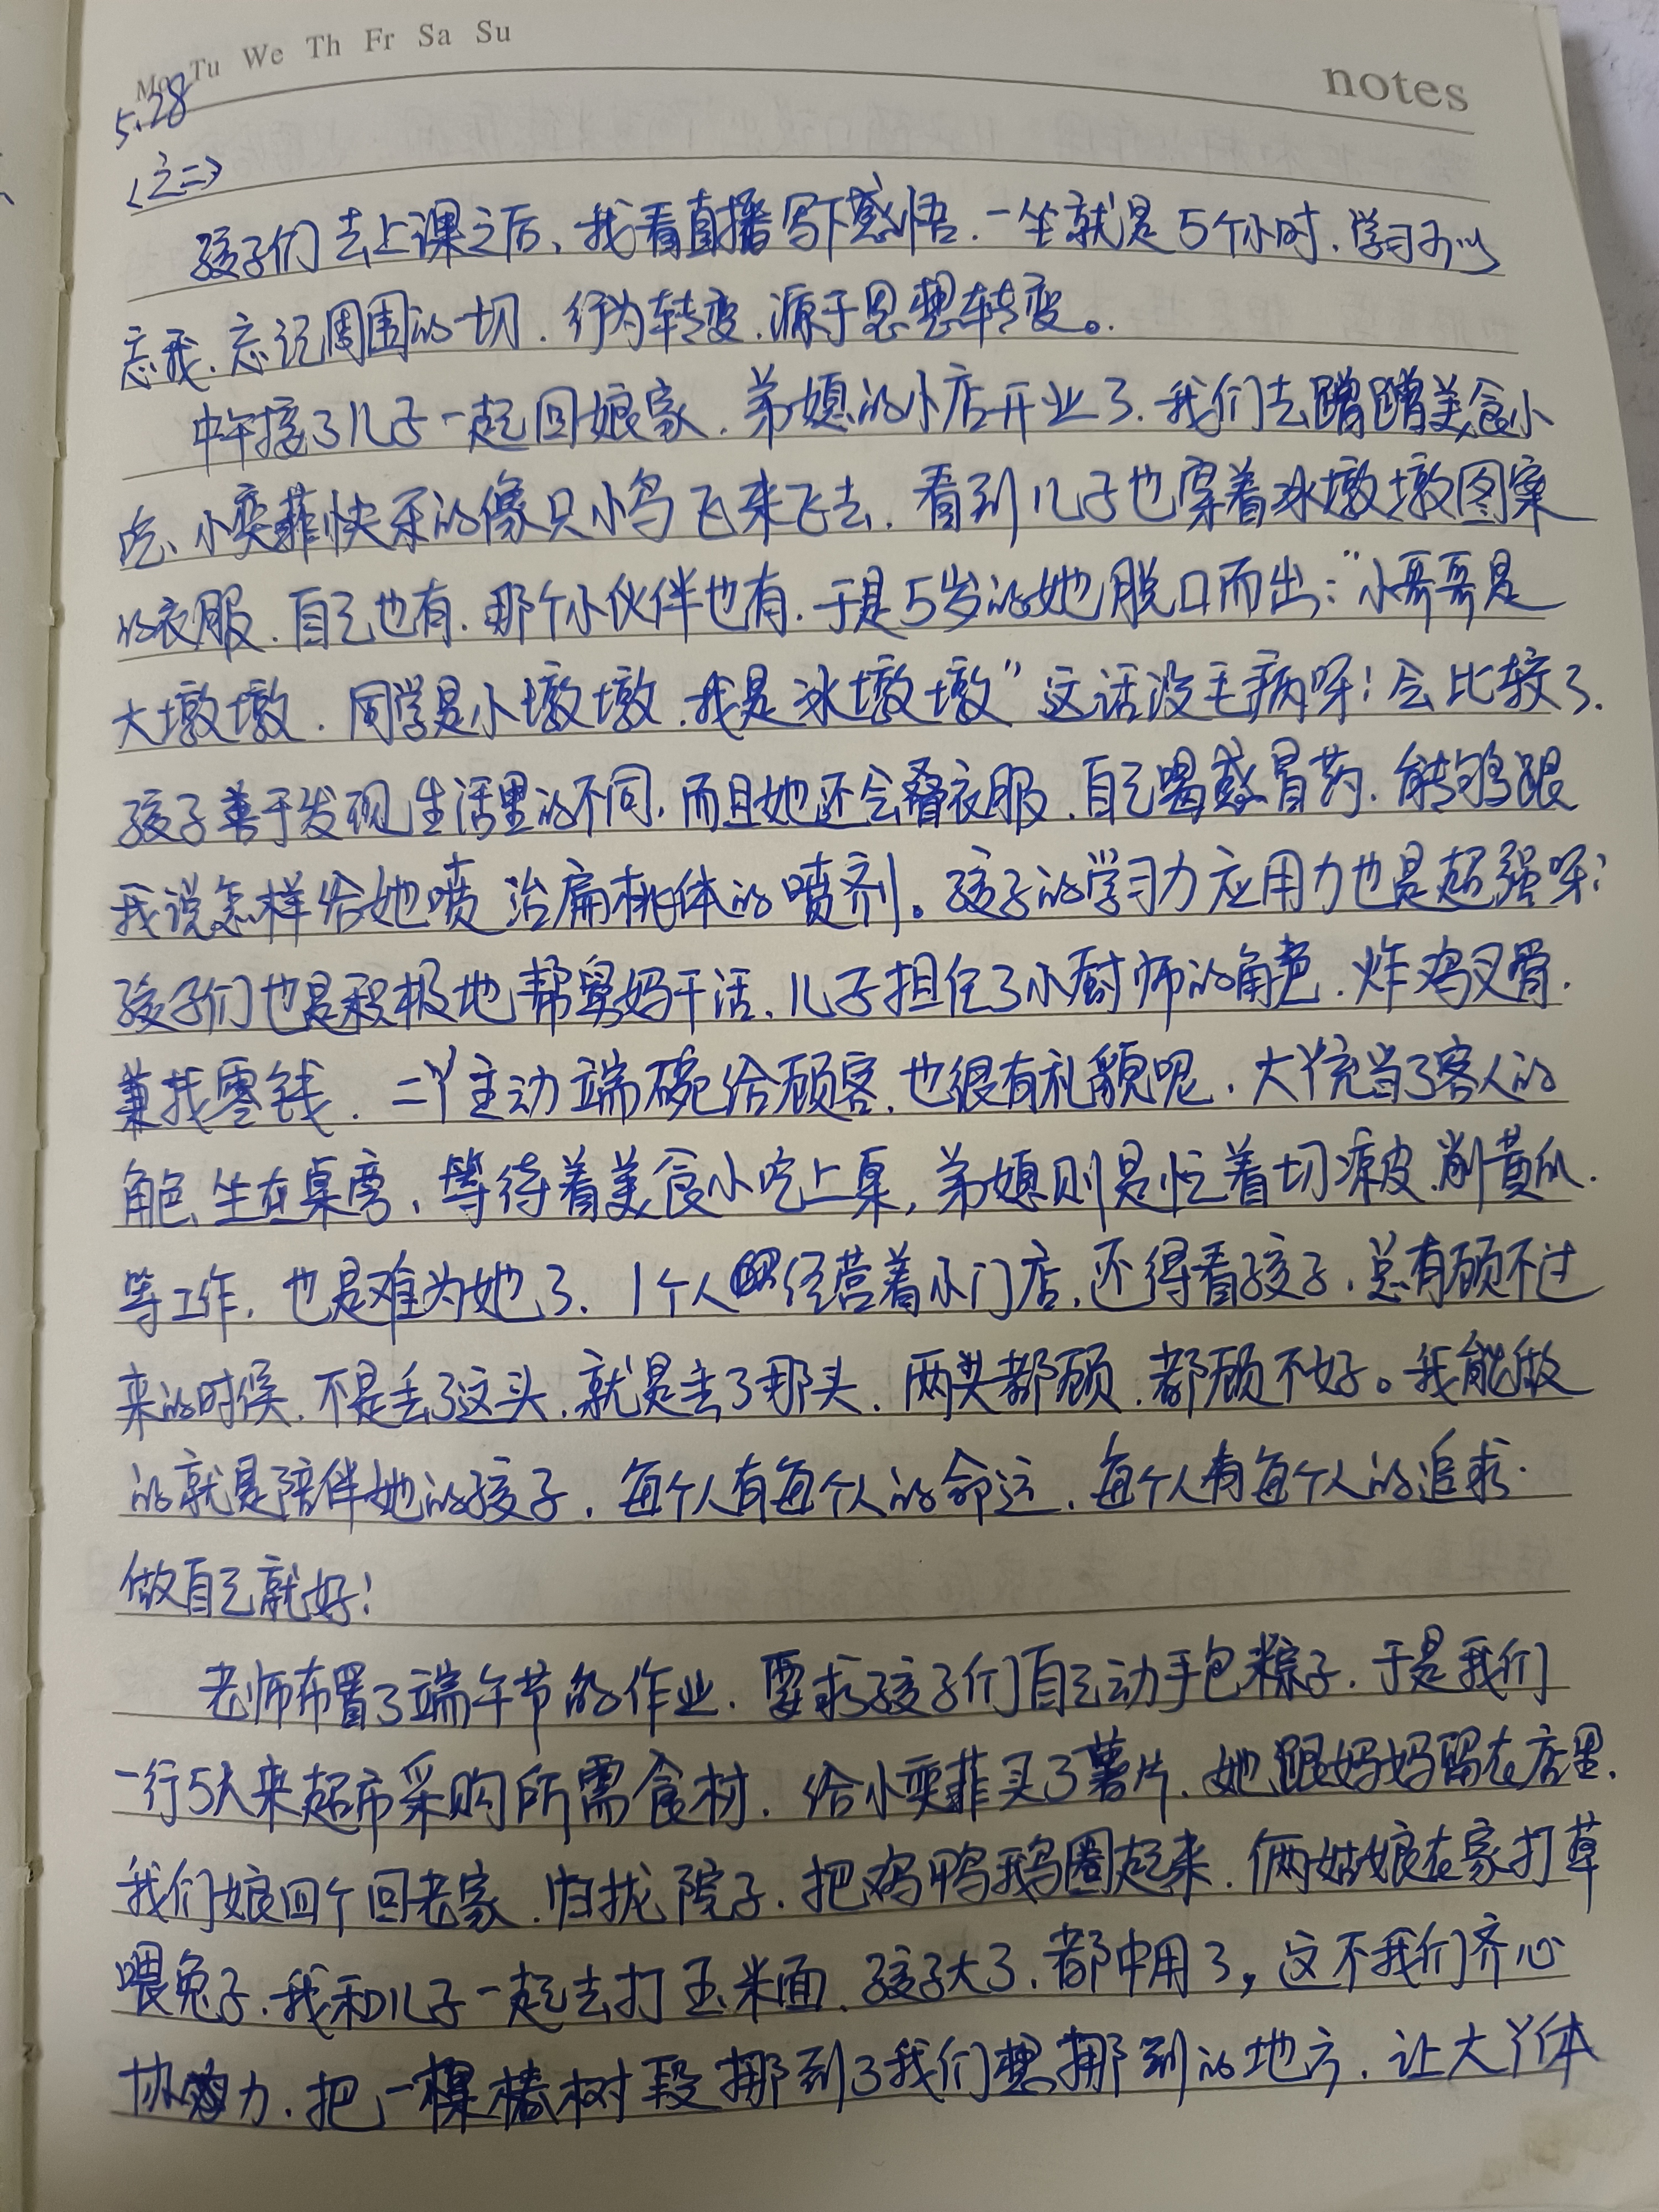 Mo Tu We Th Fr Sa Su
notes
5.28
(之二)
孩子们去上课之后、我看直播写下感悟.一坐就是5个小时.学习可以
忘我.忘记周围的一切.行为转变.源于思想转变。
中午接了儿子一起回娘家.弟媳的小店开业了.我们去蹭蹭美食小
吃、小奕菲快乐的像只小鸟飞来飞去.看到儿子也穿着冰墩墩图案
的衣服.自己也有.那个小伙伴也有.于是5岁的她脱口而出:“小哥哥是
大墩墩.同学是小墩墩.我是冰墩墩”这话没毛病呀!会比较了.
孩子善于发现生活里的不同,而且她还会叠衣服.自己喝感冒药.能够跟
我说怎样给她喷治扁桃体的喷剂。孩子的学习力应用力也是超强呀!
孩子们也是积极地帮舅妈干活、儿子担任了小厨师的角色.炸鸡叉骨.
兼找零钱.二丫主动端碗给顾客.也很有礼貌呢.大丫充当了客人的
角色、坐在桌旁、等待着美食小吃上桌,弟媳则是忙着切凉皮.削黄瓜.
等工作.也是难为她了.1个人经营着小门店.还得看孩子.总有顾不过
来的时候.不是丢了这头.就是丢了那头.两头都顾.都顾不好。我能做
的就是陪伴她的孩子.每个人有每个人的命运.每个人有每个人的追求.
做自己就好!
老师布置了端午节的作业.要求孩子们自己动手包粽子.于是我们
一行5人来超市采购所需食材.给小奕菲买了薯片.她跟妈妈留在店里.
我们娘四个回老家.归拢院子.把鸡鸭鹅圈起来.俩姑娘在家打草
喂兔子.我和儿子一起去打玉米面.孩子大了.都中用了,这不我们齐心
协力.把一棵椿树段挪到了我们想挪到的地方.让大丫体